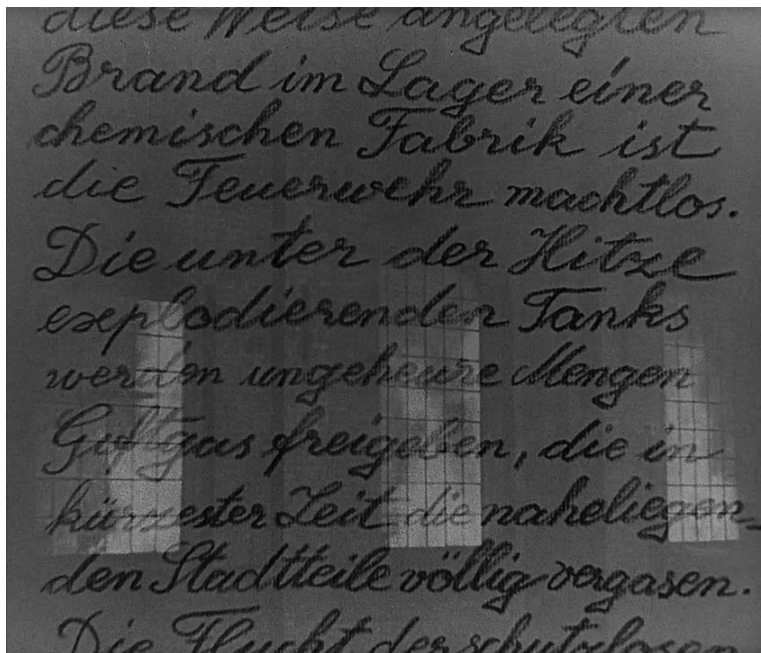 diese Weise angelegten
Brand im Lager einer
chemischen Fabrik ist
die Feuerwehr machtlos.
Die unter der Hitze
explodierenden Tanks
werden ungeheure Mengen
Giftgas freigeben, die in
kürzester Zeit die naheliegen-
den Stadtteile völlig vergasen.
Die Flucht der schutzlosen